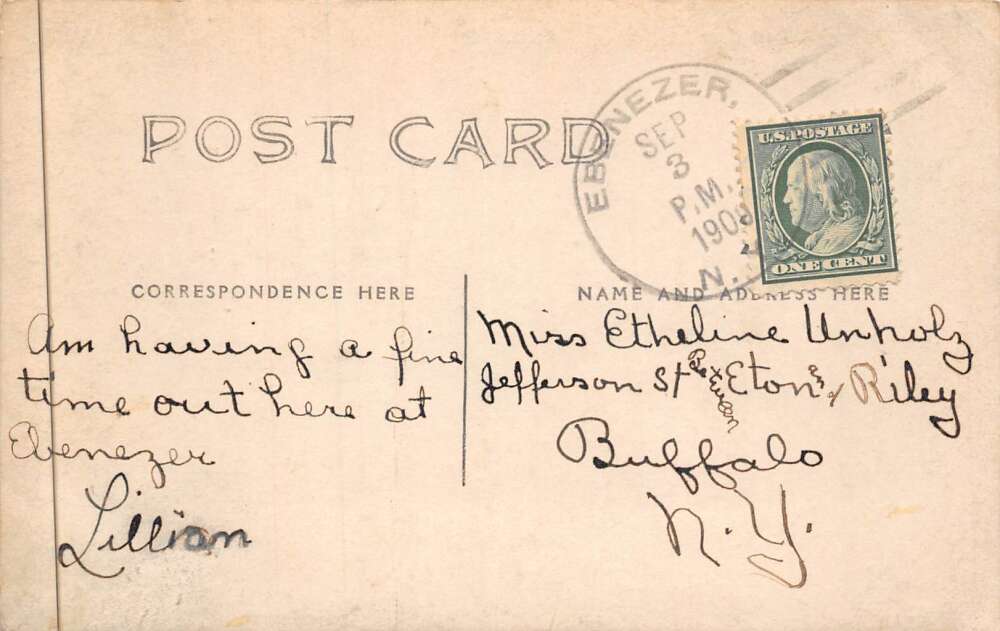 POST CARD
EBENEZER,
SEP
3
P.M.
190
N.
U.S. POSTAGE
ONE CENT
CORRESPONDENCE HERE
NAME AND ADDRESS HERE
Am having a fine
time out here at
Ebenezer
Lillian
Miss Etheline Unholz
Jefferson St Bet Eton & Riley
Buffalo
N.Y.